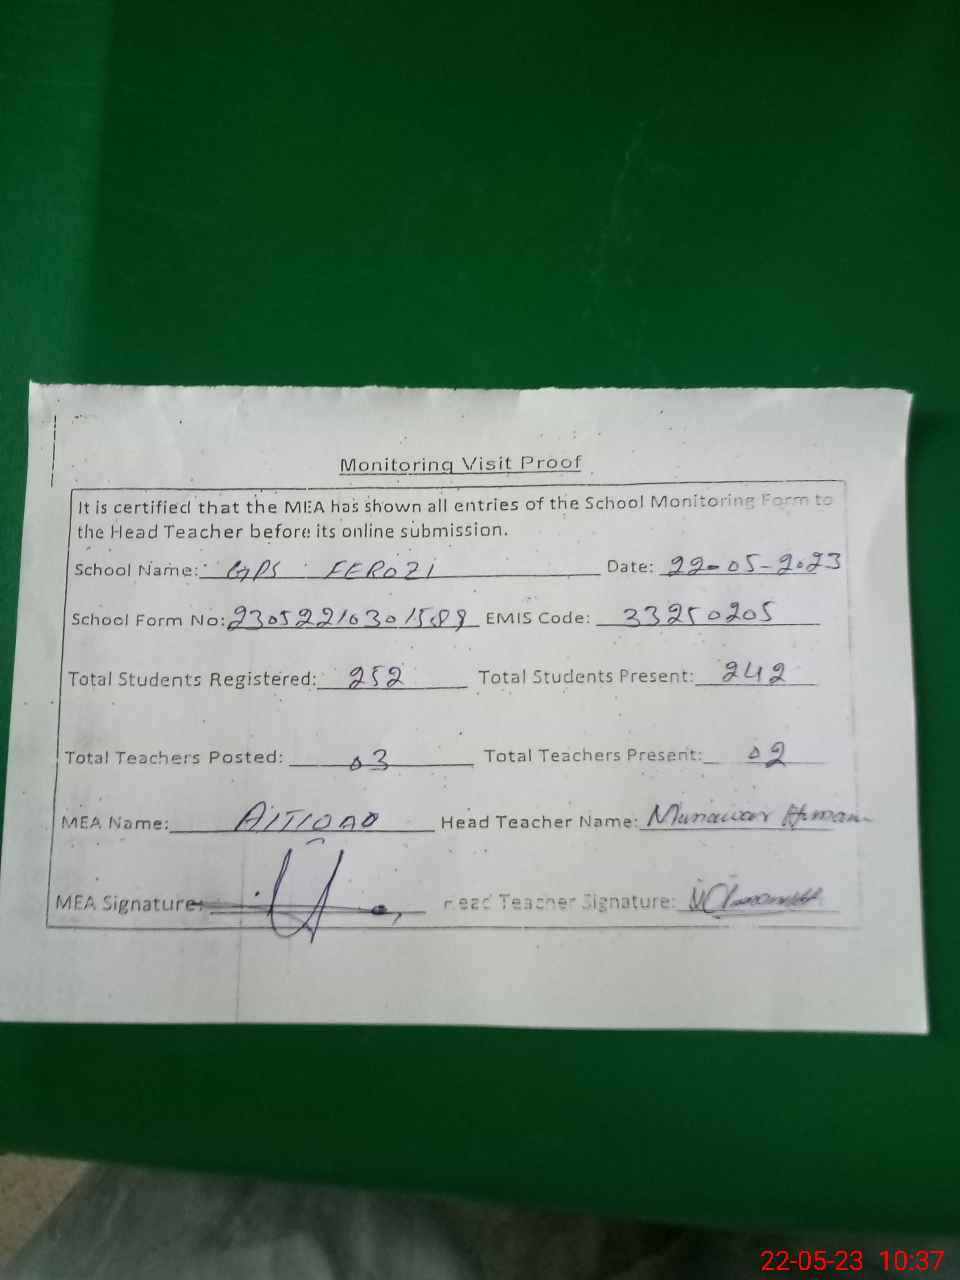 Monitoring Visit Proof
It is certified that the MEA has shown all entries of the School Monitoring Form to
the Head Teacher before its online submission.
School Name: GPS FEROZI Date: 22-05-2023
School Form No: 23052210301589 EMIS Code: 33250205
Total Students Registered: 252 Total Students Present: 242
Total Teachers Posted: 03 Total Teachers Present: 02
MEA Name: Head Teacher Name: Munawar
MEA Signature: Head Teacher Signature:
22-05-23 10:37